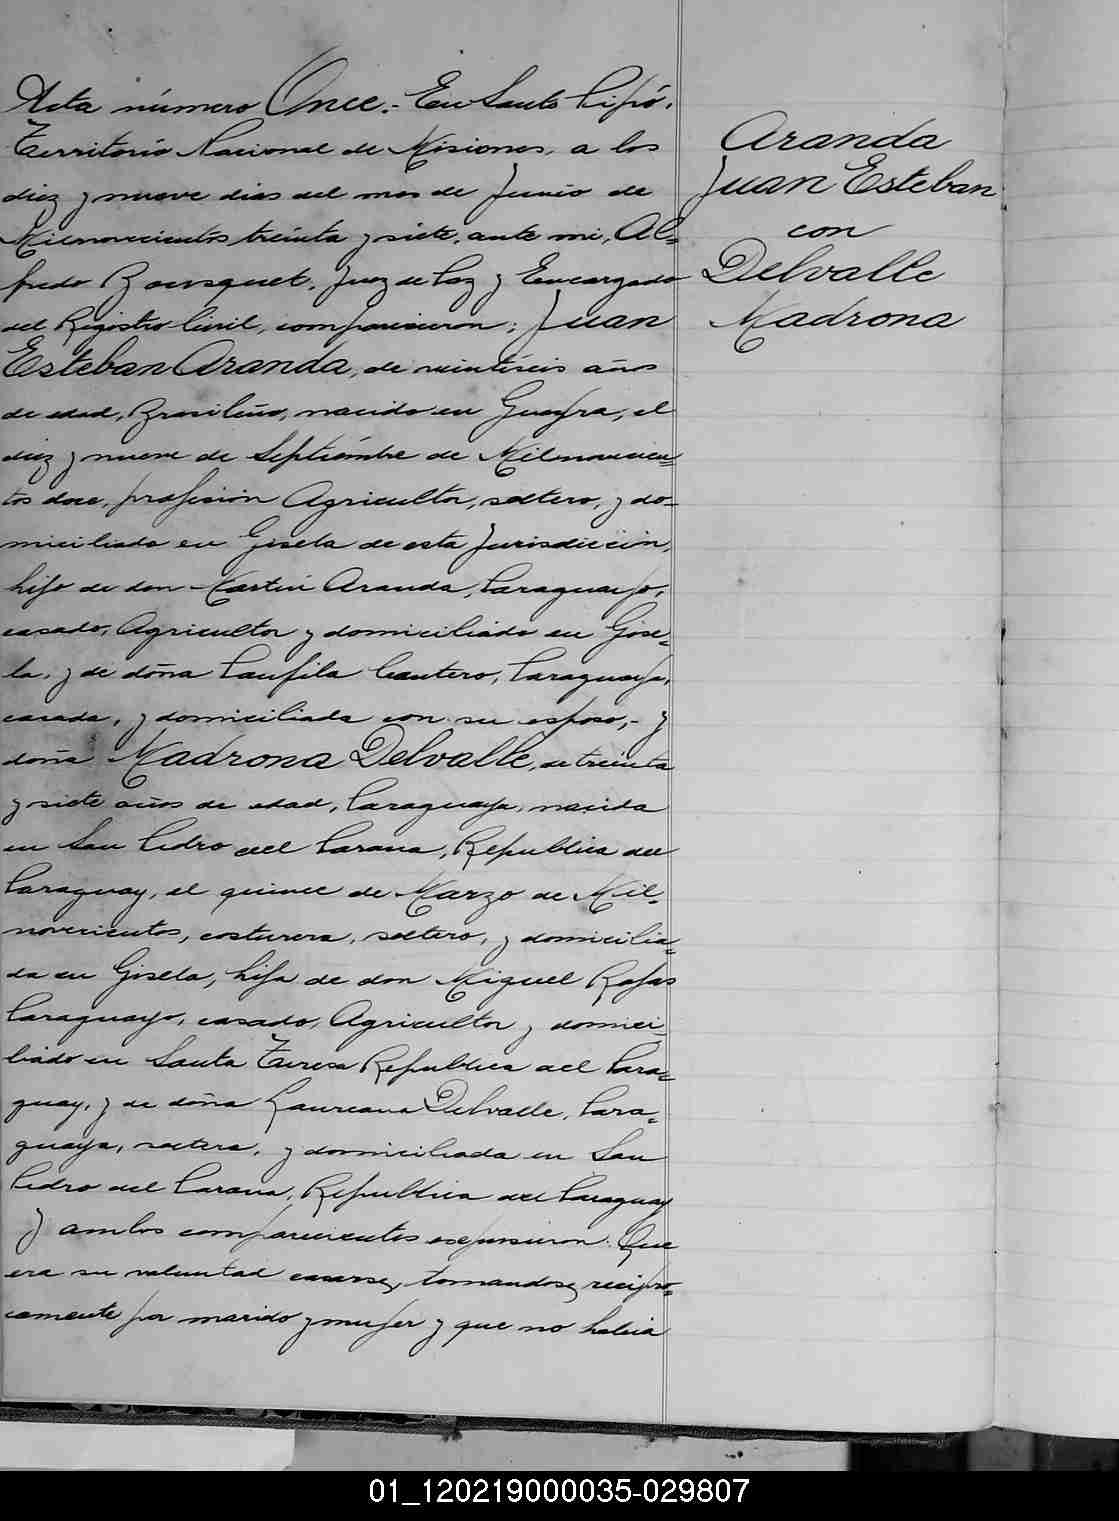 Acta número Once.- En Santo Pipó,
Territorio Nacional de Misiones, a los
diez y nueve dias del mes de Junio de
Milnovecientos treinta y siete, ante mi, Al=
fredo Bousquet, Juez de Paz y Encargado
del Registro Civil, comparecieron: Juan
Esteban Aranda, de veintiseis años
de edad, Brasileño, nacido en Guayra, el
diez y nueve de Septiembre de Milnovecien=
tos doce, profesión Agricultor, soltero, y do=
miciliado en Gisela de esta jurisdicción,
hijo de don Martin Aranda, Paraguayo,
casado, Agricultor y domiciliado en Gise=
la, y de doña Cantero, Paraguaya,
casada, y domiciliada con su esposo,- y
doña Madrona Delvalle, de treinta
y siete años de edad, Paraguaya, nacida
en San Pedro del Parana, Republica del
Paraguay, el quince de Marzo de Mil=
novecientos, costurera, soltero, y domicilia=
da en Gisela, hija de don Miguel Rojas
Paraguayo, casado, Agricultor y domici=
liado en Santa Teresa Republica del Para=
guay, y de doña Laureana Delvalle, Para=
guaya, soltera, y domiciliada en San
Pedro del Parana, Republica del Paraguay
y ambos comparecientes expusieron: Que
era su voluntad casarse, tomandose recipro=
camente por marido y mujer y que no habia
Aranda
Juan Esteban
con
Delvalle
Madrona
01_120219000035-029807